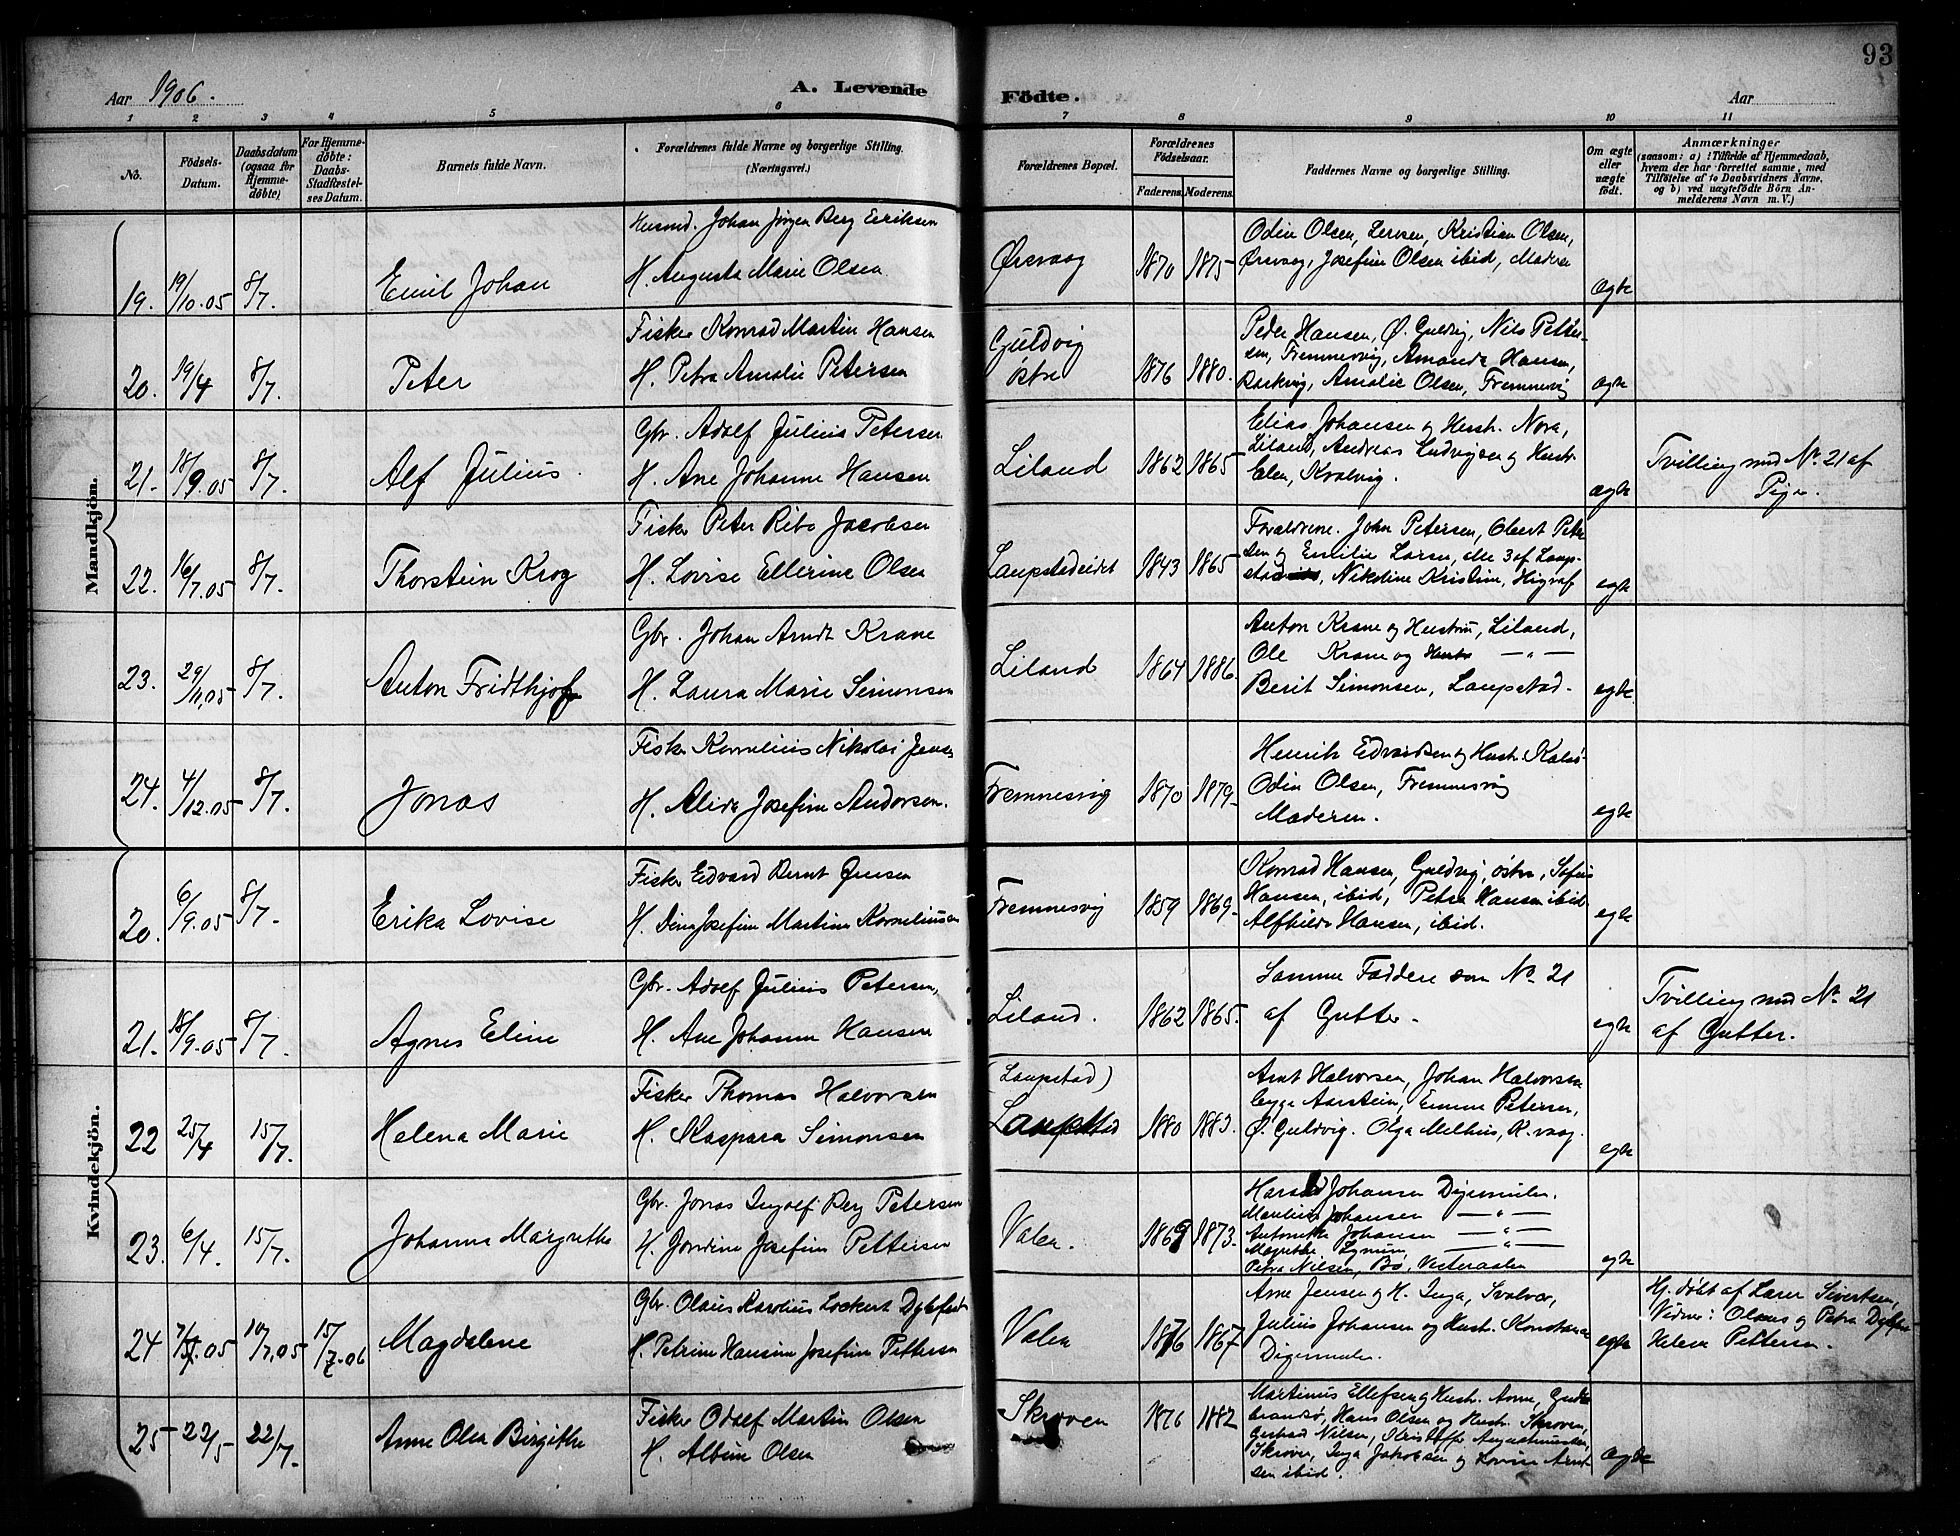 93
Aar 1906.
A. Levende Födte.
Aar
1 2 3 4 5 6 7 8 9 10 11
No.
Födsels-Datum.
Daabsdatum (ogsaa for Hjemme-döbte)
For Hjemme-döbte: Daabs-Stadfæstelses Datum.
Barnets fulde Navn.
Forældrenes fulde Navne og borgerlige Stilling. (Næringsvei.)
Forældrenes Bopæl.
Forældrenes Födselsaar.
Faderens. Moderens.
Faddernes Navne og borgerlige Stilling.
Om ægte eller uægte födt.
Anmærkninger
(saasom: a) i Tilfælde af Hjemmedaab, hvem der har forrettet samme, med Tilföielse af to Daabsvidners Navne, og b) ved uægtefödte Börn Anmelderens Navn m. V.)
Mandkjön.
19. 19/10.05 8/7. Emil Johan
Husmd. Johan Jörgen Berg Eriksen
H. Augusta Marie Olsen
Örsvaag 1870 1875
Odin Olsen, Kristian Olsen,
Örsvaag, Josefine Olsen ibid, Moderen
ægte
20. 19/4 8/7. Peter
Fisker Konrad Martin Hansen
H. Petra Amalie Petersen
Guldvig östre 1876 1880.
Peder Hansen, Ö. Guldvig, Nils Petter-
sen, Fremnesvig, Amanda Hansen,
Amalie Olsen, Fremnesvig
ægte
21. 18/9.05 8/7. Alf Julius.
Gbr. Adolf Julius Petersen
H. Ane Johanne Hansen
Liland 1862 1865
Elias Johansen og Hustr. Nora,
Liland, Andreas Ludvigsen og Hustr.
Elen, Kvalvig.
ægte
Tvilling med No. 21 af
Piger.
22. 16/7.05 8/7. Thorstein Krog
Fisker Peter Ribo Jacobsen
H. Lovise Ellerine Olsen
Laupstadeidet 1843 1865
Forældrene. John Petersen, Obert Peter
sen og Emilie Larsen, alle 3 af Laup-
stad, Nikoline Kristine, Higrav
egte
23. 29/11.05 8/7. Anton Fridthjof
Gbr. Johan Arndt Krane
H. Laura Marie Simonsen
Liland 1864 1886.
Anton Krane og Hustru, Liland,
Ole Krane og Hustr — " —
Berit Simonsen, Laupstad.
egte
24. 4/12.05 8/7. Jonas
Fisker Kornelius Nikolai Jensen
H. Alida Josefine Andorsen.
Fremnesvig 1870 1879
Henrik Edvardsen og Hustr.
Odin Olsen, Fremnesvig
Moderen.
egte
Kvindekjön.
20. 6/9.05 8/7. Erika Lovise
Fisker Edvard Bernt Jensen
H. Dina Josefine Martine Korneliussen
Fremnesvig 1859 1869
Konrad Hansen, Guldvig, östre, Sofus
Hansen, ibid, Petra Hansen ibid
Alfhilda Hansen, ibid.
egte
21. 18/9.05 8/7. Agnes Eline
Gbr. Adolf Julius Petersen,
H. Ane Johanne Hansen
Liland. 1862 1865.
Samme Faddere som No. 21
af Gutter.
egte
Tvilling med No. 21
af Gutter.
22 25/4 15/7. Helena Marie
Fisker Thomas Halvorsen
H. Kaspara Simonsen
(Laupstad)
Laupstad 1880 1883.
Arnt Halvorsen, Johan Halvorsen
Aarstein, Emma Petersen,
Ö. Guldvig. Olga Melhus, K.vaag.
egte
23. 6/4. 15/7. Johanna Margrethe
Gbr. Jonas Ingolf Berg Petersen
H. Jordine Josefine Pettersen
Valen. 1869 1873.
Harald Johansen Digermulen.
Johansen — " —
Johansen — " —
— " —
Petra Nilsen, Bö, Vesteraalen
egte
24 05 10/7.05 15/7.06 Magdalene
Gbr. Olaus Karolius Lockert Dybfest
H. Petrine Hansine Josefine Pettersen
Valen 1876 1867
Arne Jensen og H. Inga, Svolvær,
Julius Johansen og Hustr. Konstanse
Digermulen.
egte
Hj. döbt af Lærer Sivertsen,
Vidner: Olaus og Petra Dybfest
Helena Pettersen.
25 22/5 22/7. Anne Olea Birgithe
Fisker Odolf Martin Olsen
H. Albine Olsen
Skroven 1876 1882
Martinus Ellefsen og Hustr. Anne, Guld-
brandsö, Hans Olsen og Hustr. Skroven,
Gerhard Nilsen, Kristoffer Augustinussen,
Skroven, Inga Jakobsen og Lovise Arnt
sen ibid.
ægte